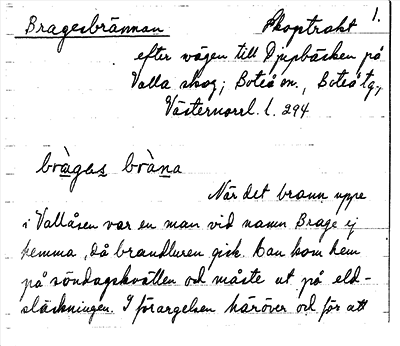 Bragesbrännan Skogstrakt 1.
efter vägen till Djupbäcken på
Valla skog; Boteå sn., Boteå tg.,
Västernorrl. l. 294
brà̱gas̱ brà̱ṉa
När det brann uppe
i Vallåsen var en man vid namn Brage ej
hemma, då brandluren gick. Han kom hem
på söndagskvällen och måste ut på eld-
släckningen. I förargelsen häröver och för att